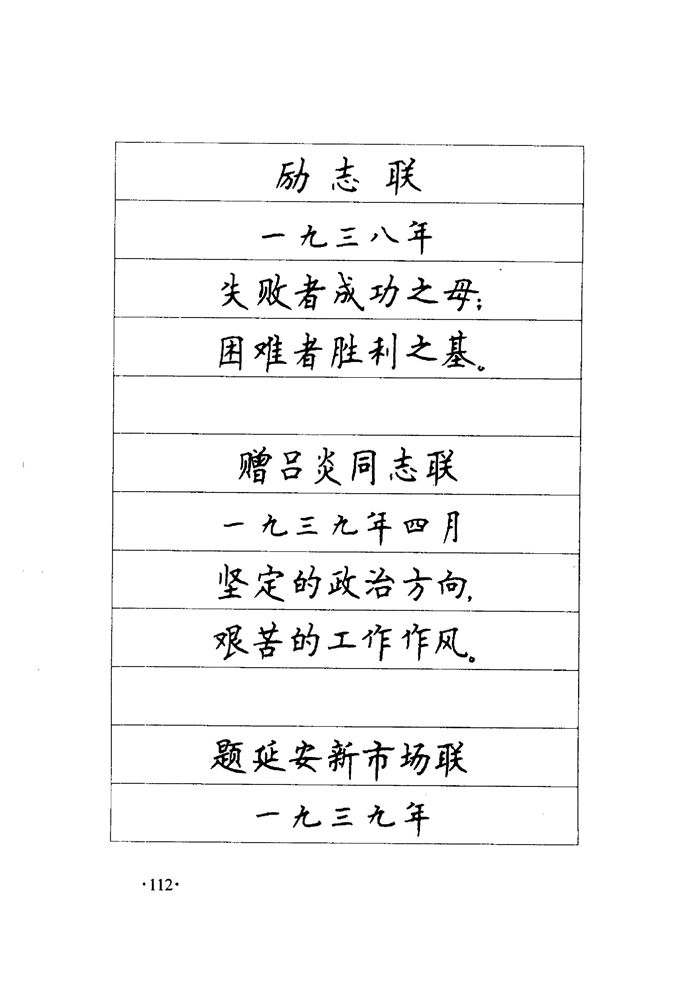 励志联
一九三八年
失败者成功之母；
困难者胜利之基。
赠吕炎同志联
一九三九年四月
坚定的政治方向，
艰苦的工作作风。
题延安新市场联
一九三九年
·112·